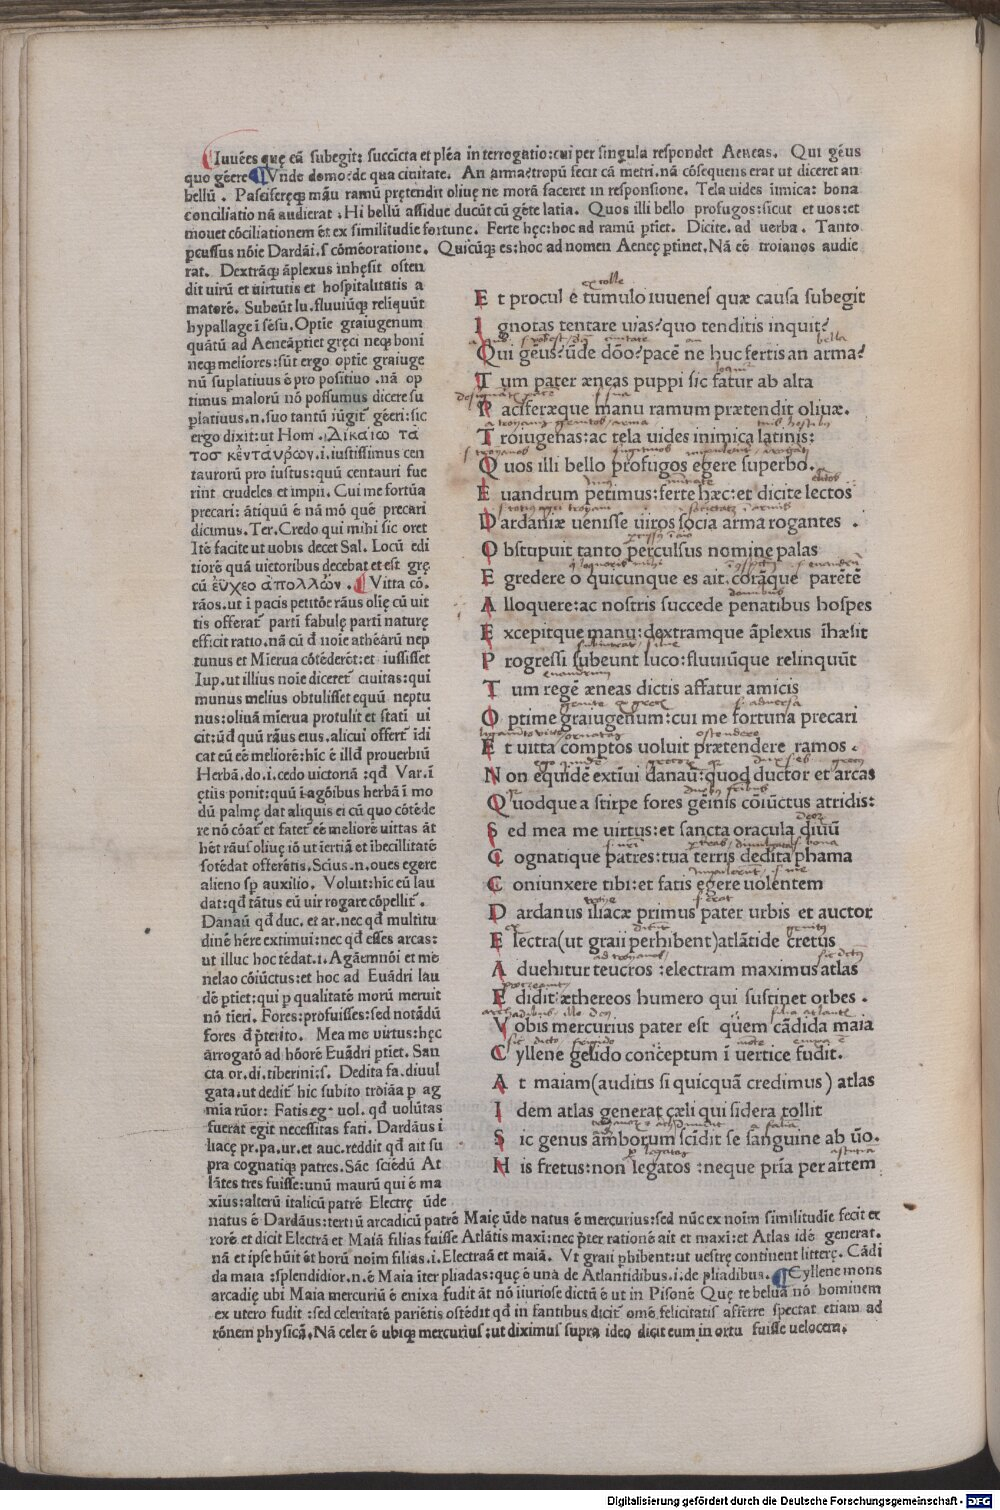 Iuuẽes quę eã subegit: succĩcta et plẽa interrogatio: cui per singula respondet Aeneas. Qui gẽus
quo gẽere Vnde domo: de qua ciuitate. An arma: tropũ fecit cã metri. nã cõsequens erat ut diceret an
bellũ . Paciferęq; mãu ramũ prętendit oliuę ne morã faceret in responsione. Tela uides iimica: bona
conciliatio nã audierat : Hi bellũ assidue ducũt cũ gẽte latia. Quos illi bello profugos: sicut et uos: et
mouet cõciliationem ẽt ex similitudie fortune. Ferte hęc: hoc ad ramũ ptiet. Dicite. ad uerba. Tanto
pcussus nõie Dardãi. s cõmẽoratione. Quicũq; es: hoc ad nomen Aenęę ptinet. Nã eẽ troianos audie
rat. Dextrãq; ãplexus inhęsit osten
dit uirũ et uirtutis et hospitalitatis a
matorẽ. Subeũt lu. fluuiũq; reliquũt
hypallage ĩ sẽsu. Optie graiugenum
quãtũ ad Aeneã ptiet gręci neq; boni
neq; meliores: sũt ergo optie graiuge
nũ suplatiuus ẽ pro positiuo .nã op
timus malorũ nõ possumus dicere su
platiuus. n. suo tantũ iũgit̃ gẽeri: sic
ergo dixit: ut Hom . Δικαιω τα
τος κενταυρων. i. iustissimus cen
taurorũ pro iustus: quũ centauri fue
rint crudeles et impii. Cui me fortũa
precari: ãtiquũ ẽ nã mõ quẽ precari
dicimus. Ter. Credo qui mihi sic oret
Itẽ facite ut uobis decet Sal. Locũ edi
tiorẽ quã uictoribus decebat et est grę
cũ ευχεο απολλων . Vitta cõ.
rãos. ut i pacis petitõe rãus olię cũ uit
tis offerat̃ parti fabulę parti naturę
efficit ratio. nã cũ đ noie athẽarũ nep
tunus et Mierua cõtẽderẽt: et iussisset
Iup. ut illius noie diceret̃ ciuitas: qui
munus melius obtulisset equũ neptu
nus: oliuã mierua protulit et stati ui
cit: ũđ quũ rãus eius. alicui offert̃ idi
cat eũ eẽ meliorẽ: hic ẽ illđ prouerbiũ
Herbã. do. i. cedo uictoriã : qđ Var. i
ętiis ponit: quũ i agõibus herbã i mo
dũ palmę dat aliquis ei cũ quo cõtẽde
re nõ cõat̃ et fatet̃ eẽ meliorẽ uittas ãt
hẽt rãus oliuę iõ ut iertiã et ibecillitatẽ
sotẽdat offerẽtis. Scius. n. oues egere
alieno sp auxilio. Voluit: hic eũ lau
dat: qđ tãtus eũ uir rogare cõpellit̃ .
Danaũ qđ duc. et ar. nec qđ multitu
dinẽ hẽre extimui: nec qđ esses arcas:
ut illuc hoc tẽdat. i. Agãemnõi et me
nelao cõiũctus: et hoc ad Euãdri lau
dẽ ptiet: qui p qualitatẽ morũ meruit
nõ tieri. Fores: profuisses: sed notãdũ
fores đ p̃terito. Mea me uirtus: hęc
ãrrogatõ ad hõorẽ Euãdri ptiet. San
cta or. di. tiberini: s. Dedita fa. diuul
gata. ut dedit̃ hic subito troiãa p ag
mia rũor: Fatis eg. uol. qđ uolũtas
fuerat egit necessitas fati. Dardãus i
liacę pr. pa. ur. et auc. reddit qđ ait su
pra cognatiq; patres. Sãe sciẽdũ At
lãtes tres fuisse: unũ maurũ qui ẽ ma
xius: alterũ italicũ patrẽ Electrę ũde
natus ẽ Dardãus: tertiũ arcadicũ patrẽ Maię ũde natus ẽ mercurius: sed nũc ex noĩm similitudie fecit er
rorẽ et dicit Electrã et Maiã filias fuisse Atlãtis maxi: nec p̃ter rationẽ ait et maxi: et Atlas idẽ generat.
nã et ipse hũit ẽt horũ noĩm filias. i. Electraã et maiã. Vt graii phibent: ut uestrę continent litterę. Cãdi
da maia : splendidior. n. ẽ Maia iter pliadas: quę ẽ una de Atlantidibus. i. de pliadibus. Cyllene mons
arcadię ubi Maia mercuriũ ẽ enixa fudit ãt nõ iiuriose dictũ ẽ ut in Pisonẽ Quę te belua nõ hominem
ex utero fudit : sed celeritatẽ pariẽtis ostẽdit qđ in fantibus dicit̃ omẽ felicitatis afferre spectat etiam ad
rõnem physicã. Nã celer ẽ ubiq; mercurius: ut diximus supra ideo dicit eum in ortu fuisse uelocem.
E t procul ẽ tumulo iuuenes quæ causa subegit
I gnotas tentare uias? quo tenditis inquit?
Qui gẽus? ũde dõo? pacẽ ne huc fertis an arma?
T um pater æneas puppi sic fatur ab alta
P aciferæque manu ramum prætendit oliuæ.
T roiugenas: ac tela uides inimica latinis:
Q uos illi bello profugos egere superbo.
E uandrum petimus: ferte hæc: et dicite lectos
D ardaniæ uenisse uiros socia arma rogantes .
O bstipuit tanto perculsus nomine palas
E gredere o quicunque es ait. corãque parẽtẽ
A lloquere: ac nostris succede penatibus hospes
E xcepitque manu: dextramque ãplexus ĩhæsit
P rogressi subeunt luco: fluuiũque relinquũt
T um regẽ æneas dictis affatur amicis
O ptime graiugenum: cui me fortuna precari
E t uitta comptos uoluit prætendere ramos .
N on equidẽ extĩui danaũ: quod ductor et arcas
Q uodque a stirpe fores gẽinis cõiũctus atridis:
S ed mea me uirtus: et sancta oracula diuũ
C ognatique patres: tua terris dedita phama
C oniunxere tibi: et fatis egere uolentem
D ardanus iliacæ primus pater urbis et auctor
E lectra (ut graii perhibent) atlãtide cretus
A duehitur teucros : electram maximus atlas
E didit: æthereos humero qui sustinet orbes .
V obis mercurius pater est quem cãdida maia
C yllene gelido conceptum ĩ uertice fudit.
A t maiam (auditis si quicquã credimus) atlas
I dem atlas generat cæli qui sidera tollit
S ic genus amborum scĩdit se sanguine ab ũo.
H is fretus: non legatos : neque prĩa per artem
Digitalisierung gefördert durch die Deutsche Forschungsgemeinschaft - DFG